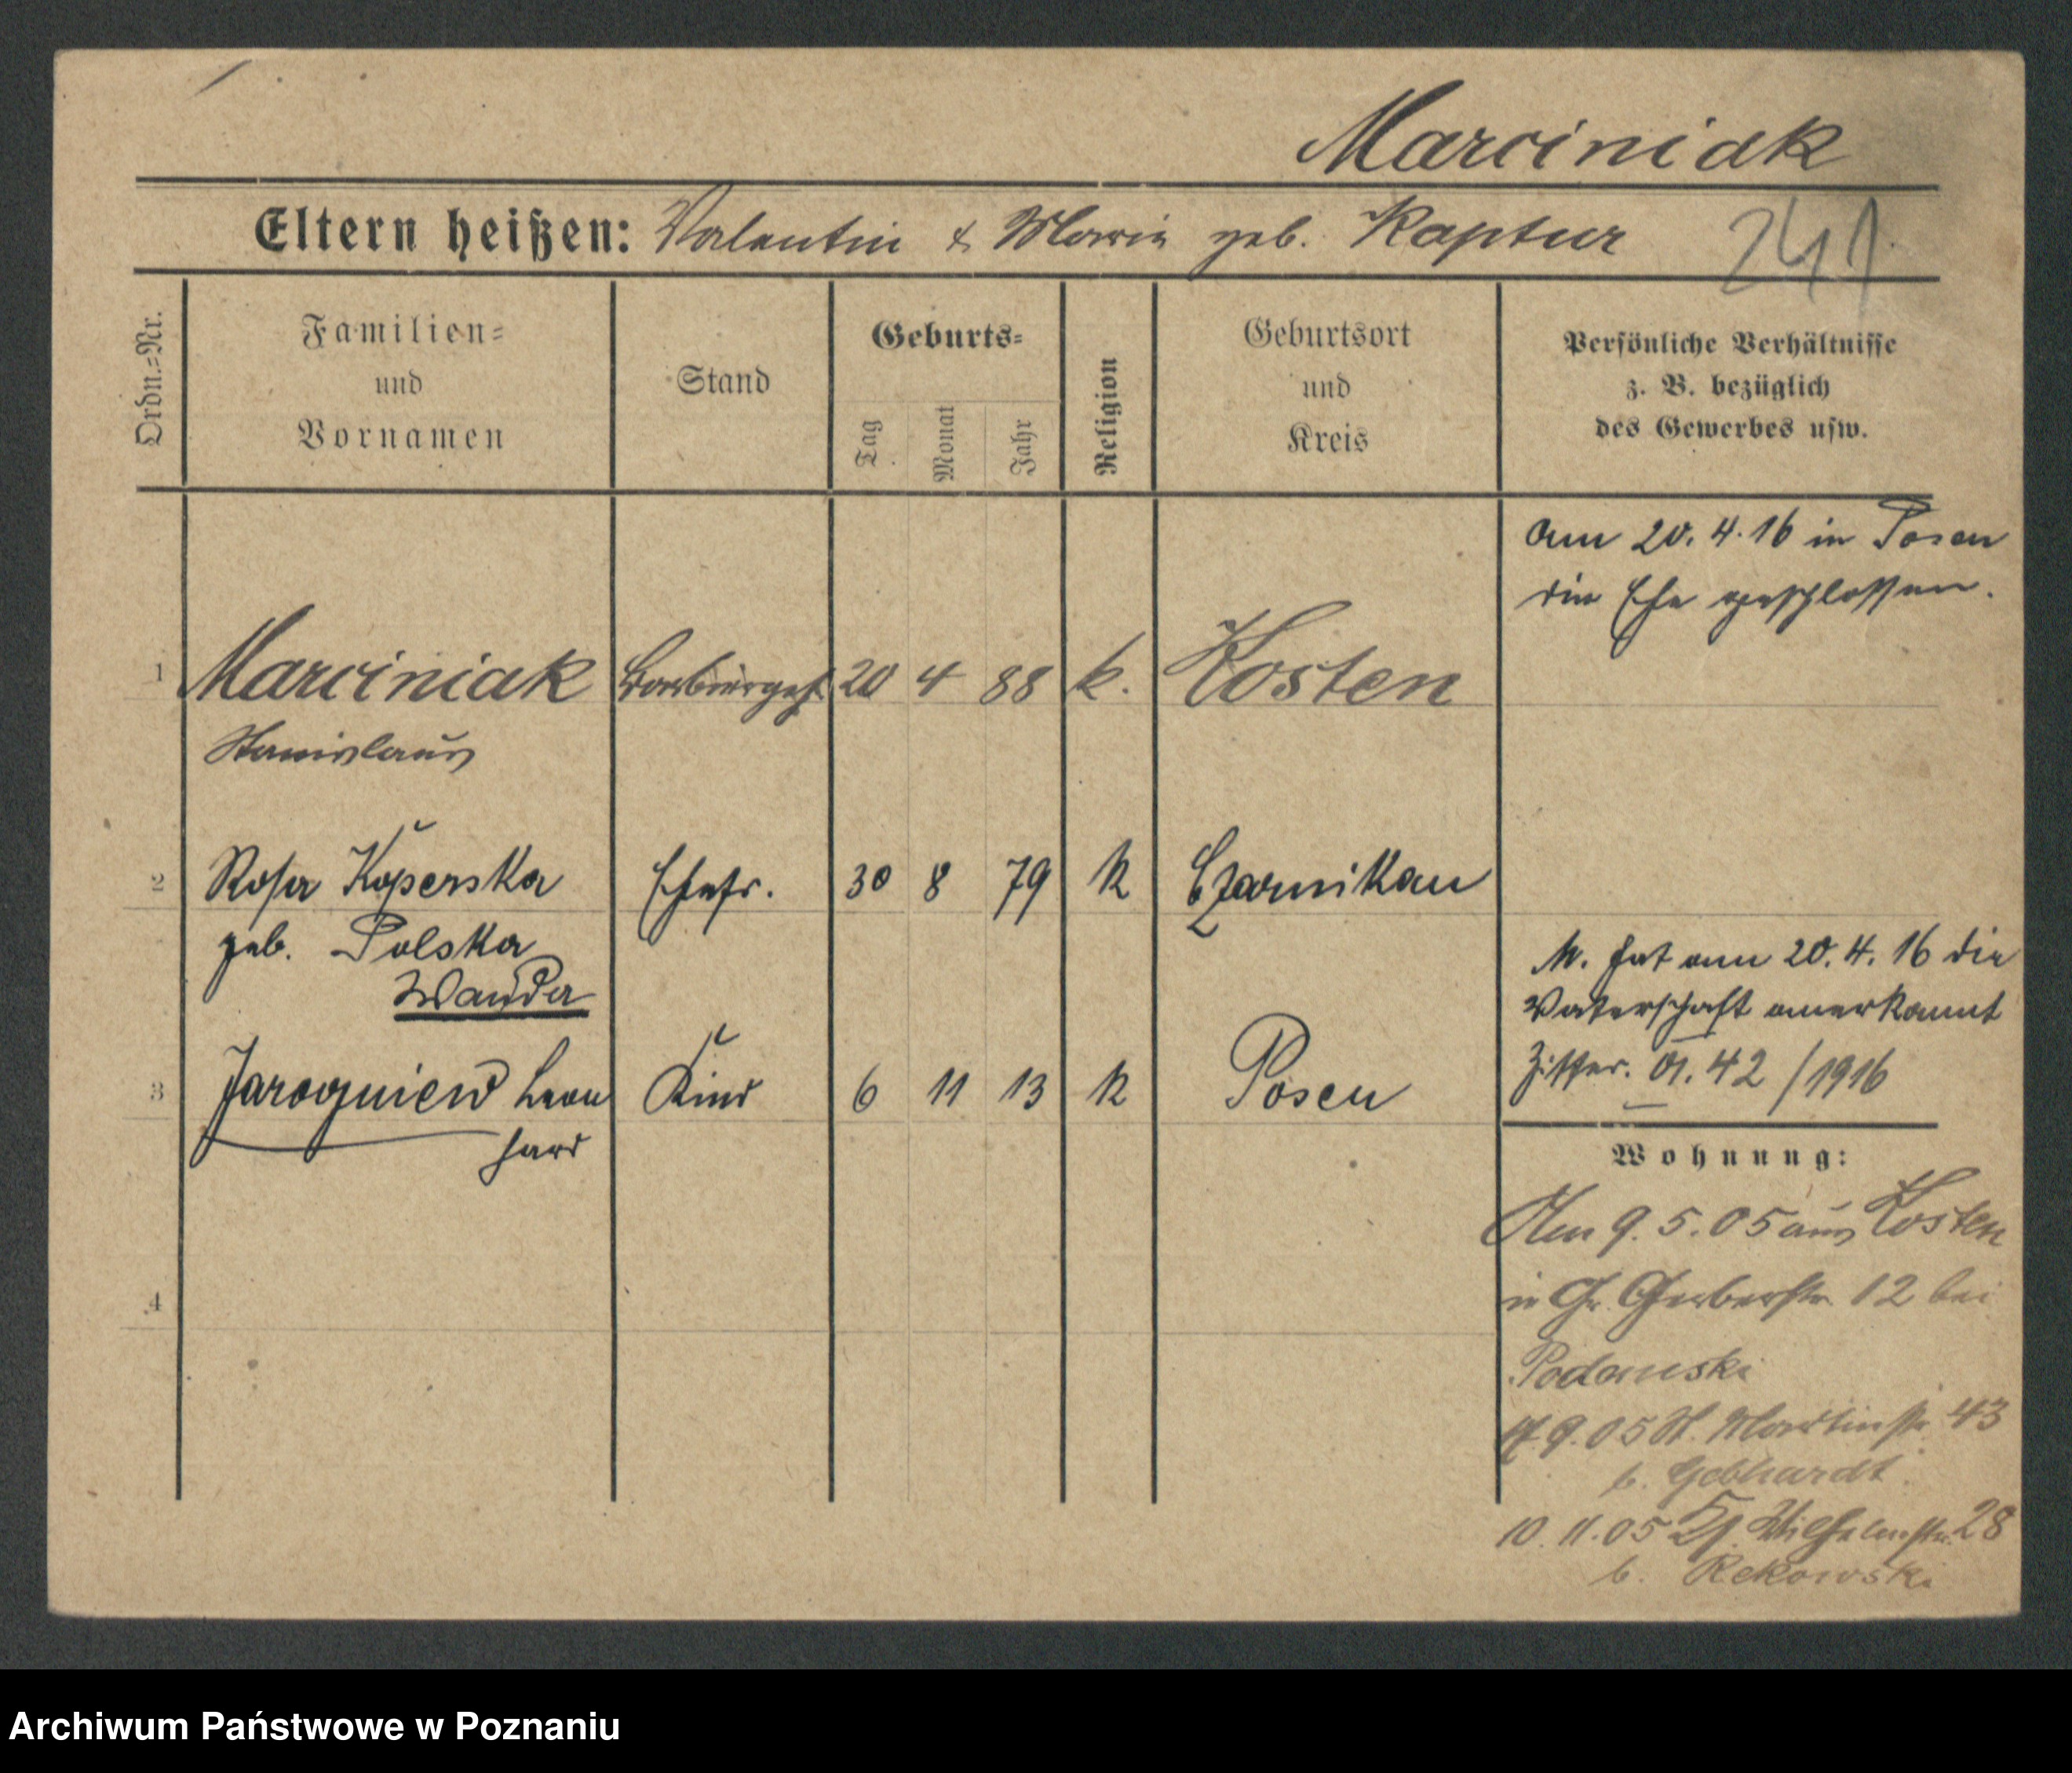 Marciniak
Eltern heißen: Valentin & Marie geb. Kaptur 241
Ordn.=Nr.
Familien=
und
Vornamen
Stand
Geburts=
Tag
Monat
Jahr
Religion
Geburtsort
und
Kreis
Persönliche Verhältnisse
z. B. bezüglich
des Gewerbes usw.
am 20. 4. 16 in Posen
die Ehe geschlossen.
1 Marciniak Barbiergeh. 20 4 88 k. Kosten
Stanislaus
2 Rosa Koperska Ehefr. 30 8 79 k Czarnikau
geb. Polska
Wanda
M. hat am 20. 4. 16 die
Vaterschaft anerkannt
3 Jarogniew Leon Kind 6 11 13 k Posen
hard
42 / 1916
Wohnung:
Am 9. 5. 05 aus Kosten
in Gr. Gerberstr. 12 bei
4
Podanski
9. 05 St. Martinstr. 43
b. Gebhardt
10. 11. 05 Wilhelmstr. 28
b. Rekowski
Archiwum Państwowe w Poznaniu